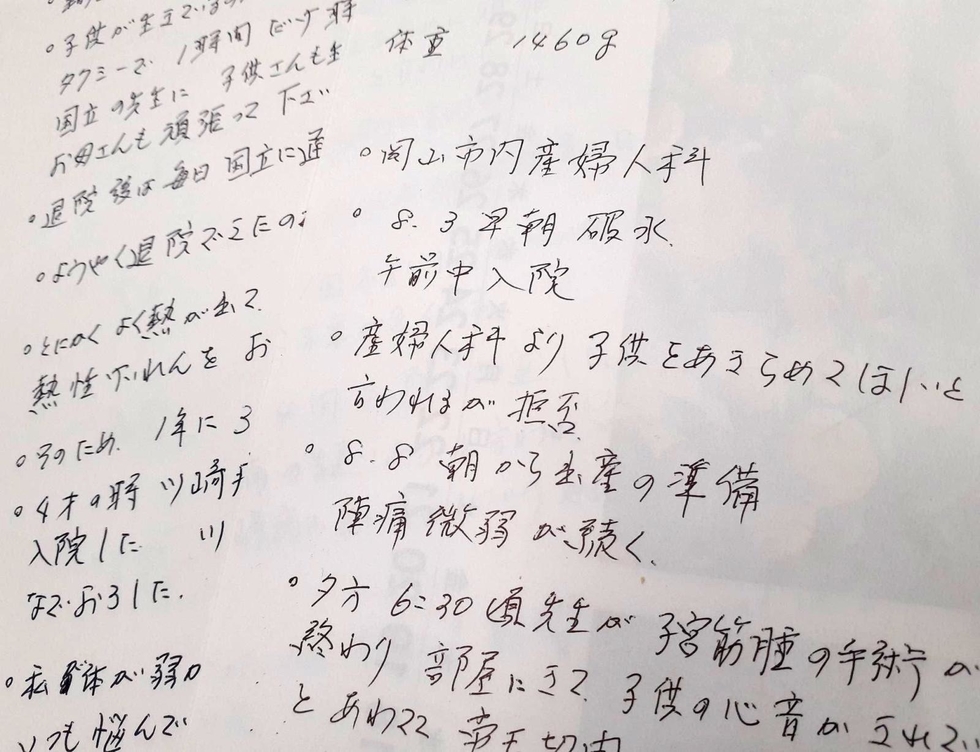 体重 1460g
・岡山市内産婦人科
・8.3 早朝 破水
午前中入院
・産婦人科より子供をあきらめてほしいと
言われるが 拒否
・8.8 朝から出産の準備
陣痛微弱が続く
・夕方6:30頃先生が子宮筋腫の手術が
終わり 部屋にきて 子供の心音がきれて
とあわてて 帝王切開
・子供が生
タクシーで 1時間だけ
国立の先生に 子供さんも生
お母さんも頑張って下さい
・退院後は毎日国立に通
・ようやく退院できたの
・とにかくよく熱が出て
熱性けいれんを お
・そのため 1年に3
・4才の時 川崎
入院した 川
などおろした
・私自体が弱
いつも悩んで